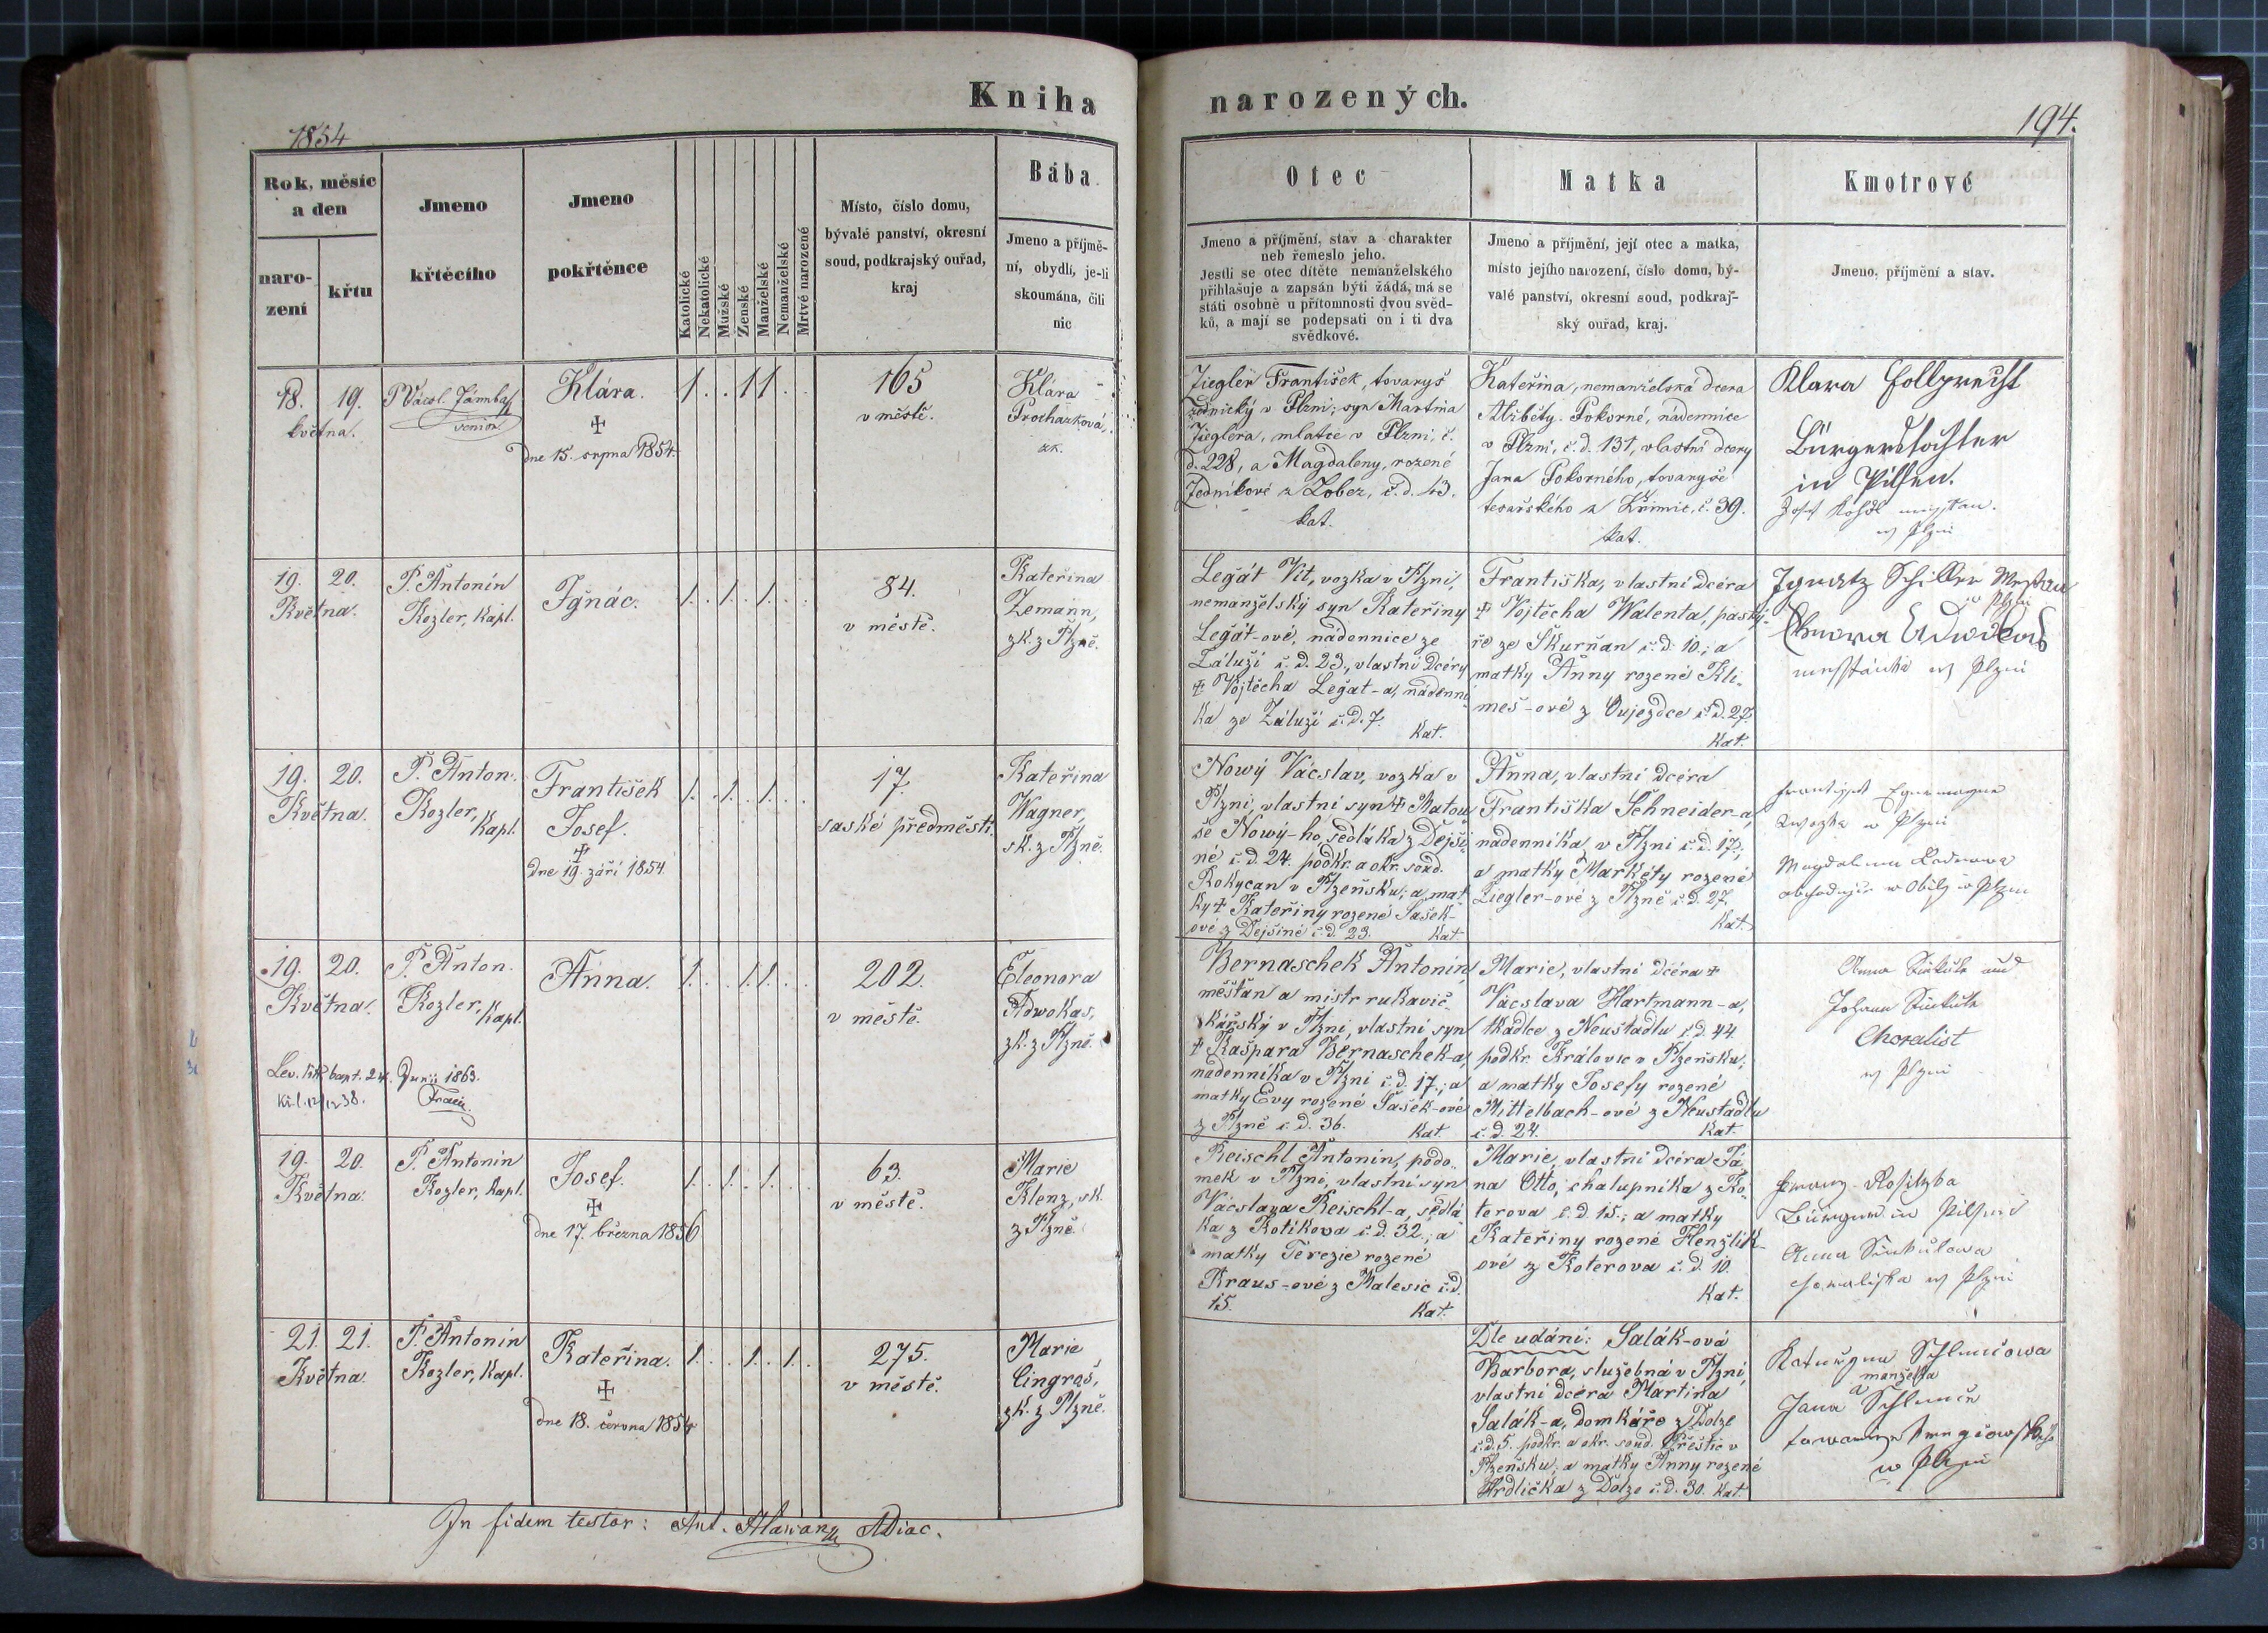 Kniha
narozených.
1854
194.
Rok, měsíc
a den
naro-
zení
křtu
Jmeno
křtěcího
Jmeno
pokřtěnce
Katolické
Nekatolické
Mužské
Ženské
Manželské
Nemanželské
Mrtvě narozené
Místo, číslo domu,
bývalé panství, okresní
soud, podkrajský ouřad,
kraj
Bába.
Jmeno a příjmě-
ní, obydlí, je-li
skoumána, čili
nic
Otec
Jmeno a příjmění, stav a charakter
neb řemeslo jeho.
Jestli se otec dítěte nemanželského
přihlašuje a zapsán býti žádá, má se
státi osobně u přítomnosti dvou svěd-
ků, a mají se podepsati on i ti dva
svědkové.
Matka
Jmeno a příjmění, její otec a matka,
místo jejího narození, číslo domu, bý-
valé panství, okresní soud, podkraj-
ský ouřad, kraj.
Kmotrové
Jmeno, příjmění a stav.
18. 19.
května.
P. Vácsl.
senior
Klára.
✝
dne 15. srpna 1854.
1 . . 1 1 . .
165
v městě.
Klara
Prochazková,
zk.
Ziegler František, tovaryš
zednický v Plzni; syn Martina
Zieglera, mlatce v Plzni, č.
d. 228, a Magdaleny, rozené
Jedníkové z Lobez, č. d. 43.
kat.
Kateřina, nemanželská dcera
Alžběty Pokorné, nádennice
v Plzni, č. d. 131, vlastní dcery
Jana Pokorného, tovaryše
tesařského z Křimic, č. 39.
kat.
Klara Hollprecht
Bürgerstochter
in Pilsen.
w Plzni
19. 20.
Května.
P. Antonín
Kozler, Kapl.
Ignác.
1. . 1. . 1. . .
84.
v městě.
Kateřina
Zemann,
zk. z Plzně.
Legát Vít, vozka v Plzni,
nemanželský syn Kateřiny
Legát-ové, nádennice ze
Záluží č. d. 23., vlastní dcéry
✝ Vojtěcha Legat-a, nádenní-
ka ze Záluží č. d. 7.
Kat.
Františka, vlastní dcéra
✝ Vojtěcha Walenta, pastý-
ře ze Skurňan č. d. 10.; a
matky Anny rozené Kli-
meš-ové z Oujezdce č. d. 27.
Kat.
Ignatz Schiller
w Plzni
w Plzni
19. 20.
Května.
P. Anton.
Kozler, Kapl.
František
Josef.
✝
dne 19. září 1854.
1. . 1. . 1. . .
17.
saské předměstí.
Kateřina
Wagner,
sk. z Plzně.
Nowý Václav, vozka v
Plzni, vlastní syn ✝ Matou-
še Nowý-ho, sedláka z Dejši-
né č. d. 24. podkr. a okr. soud.
Rokycan v Plzeňsku; a mat-
ky ✝ Kateřiny rozené Sašek-
ové z Dejšiné č. d. 23. Kat.
Anna, vlastní dcéra
Františka Schneider-a,
nádenníka v Plzni č. d. 17;
a matky Markéty rozené
Ziegler-ové z Plzně č. d. 27.
Kat.
w Plzni
Magdalena
19. 20.
Května.
P. Anton.
Kozler, Kapl.
Anna.
1. . . 1.1. . .
202.
v městě.
Eleonora
Adwokas,
zk. z Plzně.
Lev. litt. bapt. 24. Junii 1863.
Bernaschek Antonín,
měšťan a mistr rukavič-
kářský v Plzni, vlastní syn
✝ Kašpara Bernaschek-a,
nádenníka v Plzni č. d. 17.; a
matky Evy rozené Sašek-ové
z Plzně č. d. 36. Kat.
Marie, vlastní dcéra ✝
Vácslava Hartmann-a,
tkadlce z Neustadlu č. d. 44.
podkr. Královic v Plzeňsku;
a matky Josefy rozené
Mittelbach-ové z Neustadlu
č. d. 24. Kat.
Anna und
Johann
Choralist
w Plzni
19. 20.
Května.
P. Antonín
Kozler, kapl.
Josef.
✝
dne 17. března 1856
1. . 1. . 1. . .
63.
v městě.
Marie
Klenz, sk.
z Plzně.
Reischl Antonín, podo-
mek v Plzni, vlastní syn
Vácslava Reischl-a, sedlá-
ka z Kotíkova č. d. 32.; a
matky Terezie rozené
Kraus-ové z Malesic č. d.
15. Kat.
Marie, vlastní dcéra Ja-
na Otto, chalupníka z Ko-
terova č. d. 15.; a matky
Kateřiny rozené Henžlík-
ové z Koterova č. d. 10.
Kat.
Franz Rositzka
Bürger in Pilsen
Anna
w Plzni
21. 21.
Května.
P. Antonín
Kozler, Kapl.
Kateřina.
✝
dne 18. června 1854
1. . . 1. . 1. .
275.
v městě.
Marie
Cingroš,
zk. z Plzně.
Dle udání: Salák-ová
Barbora, služebná v Plzni,
vlastní dcéra Martina
Salák-a, domkáře z Dolze
č. d. 5. podkr. a okr. soud. Přeštic v
Plzeňsku; a matky Anny rozené
Hrdlička z Dolze č. d. 30. Kat.
manželka
Jana
w Plzni
In fidem testor: Ant. ADiac.